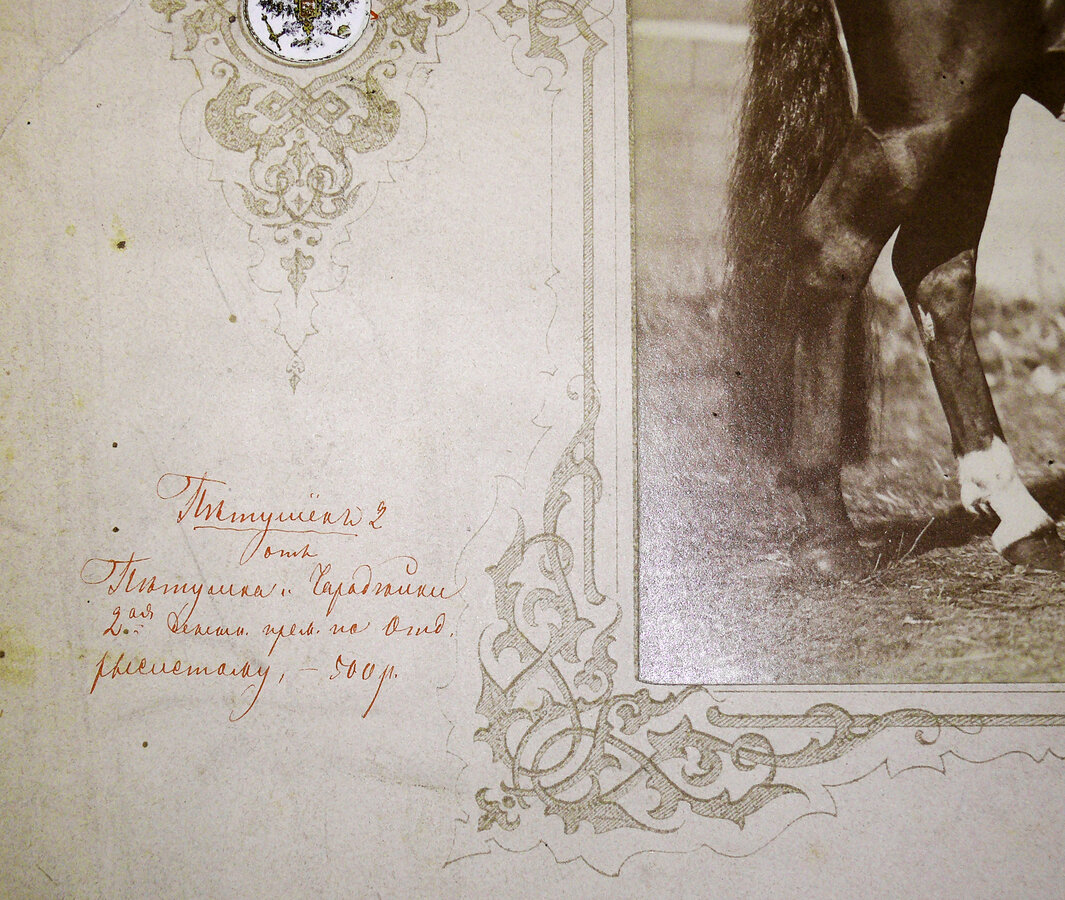 Пѣтушёкъ 2
отъ
Пѣтушка и Чародѣйки
2ая денежн. прем. по Отд.
рысистому, – 500 р.